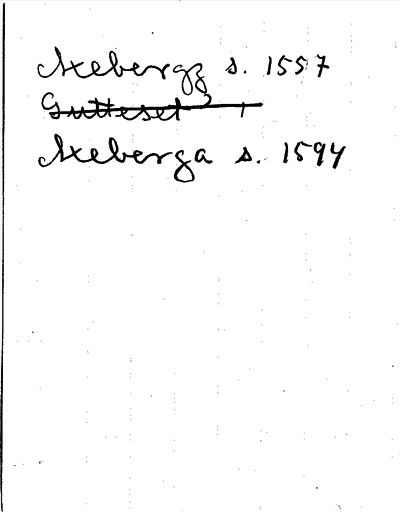 Axebergz s. 1557
Gutteset
Axeberga s. 1594